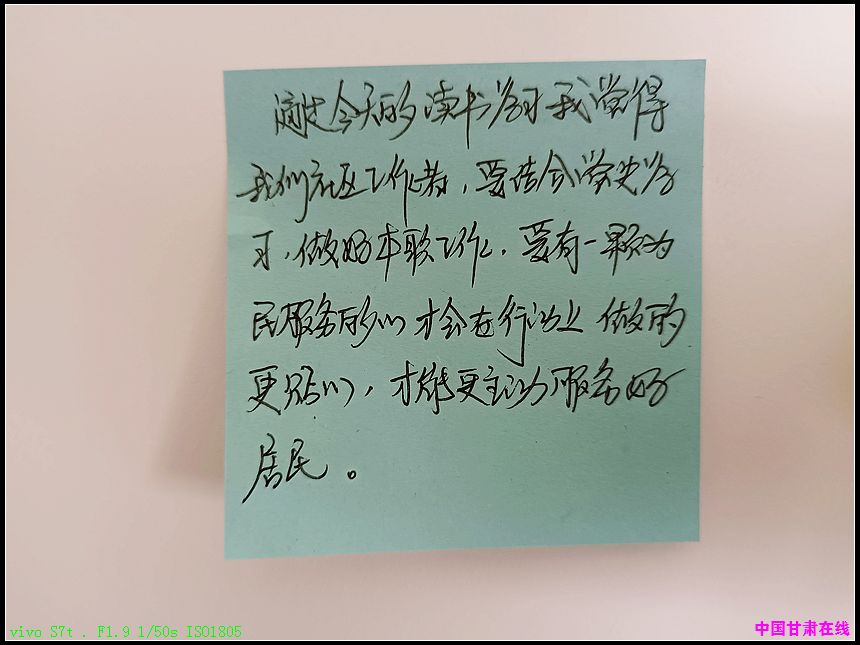 通过今天的读书学习我觉得
我们社区工作者，要结合党史学
习，做好本职工作，要有一颗为
民服务的心才会在行动上做的
更贴心，才能更主动服务好
居民。
vivo S7t . F1.9 1/50s ISO1805
中国甘肃在线